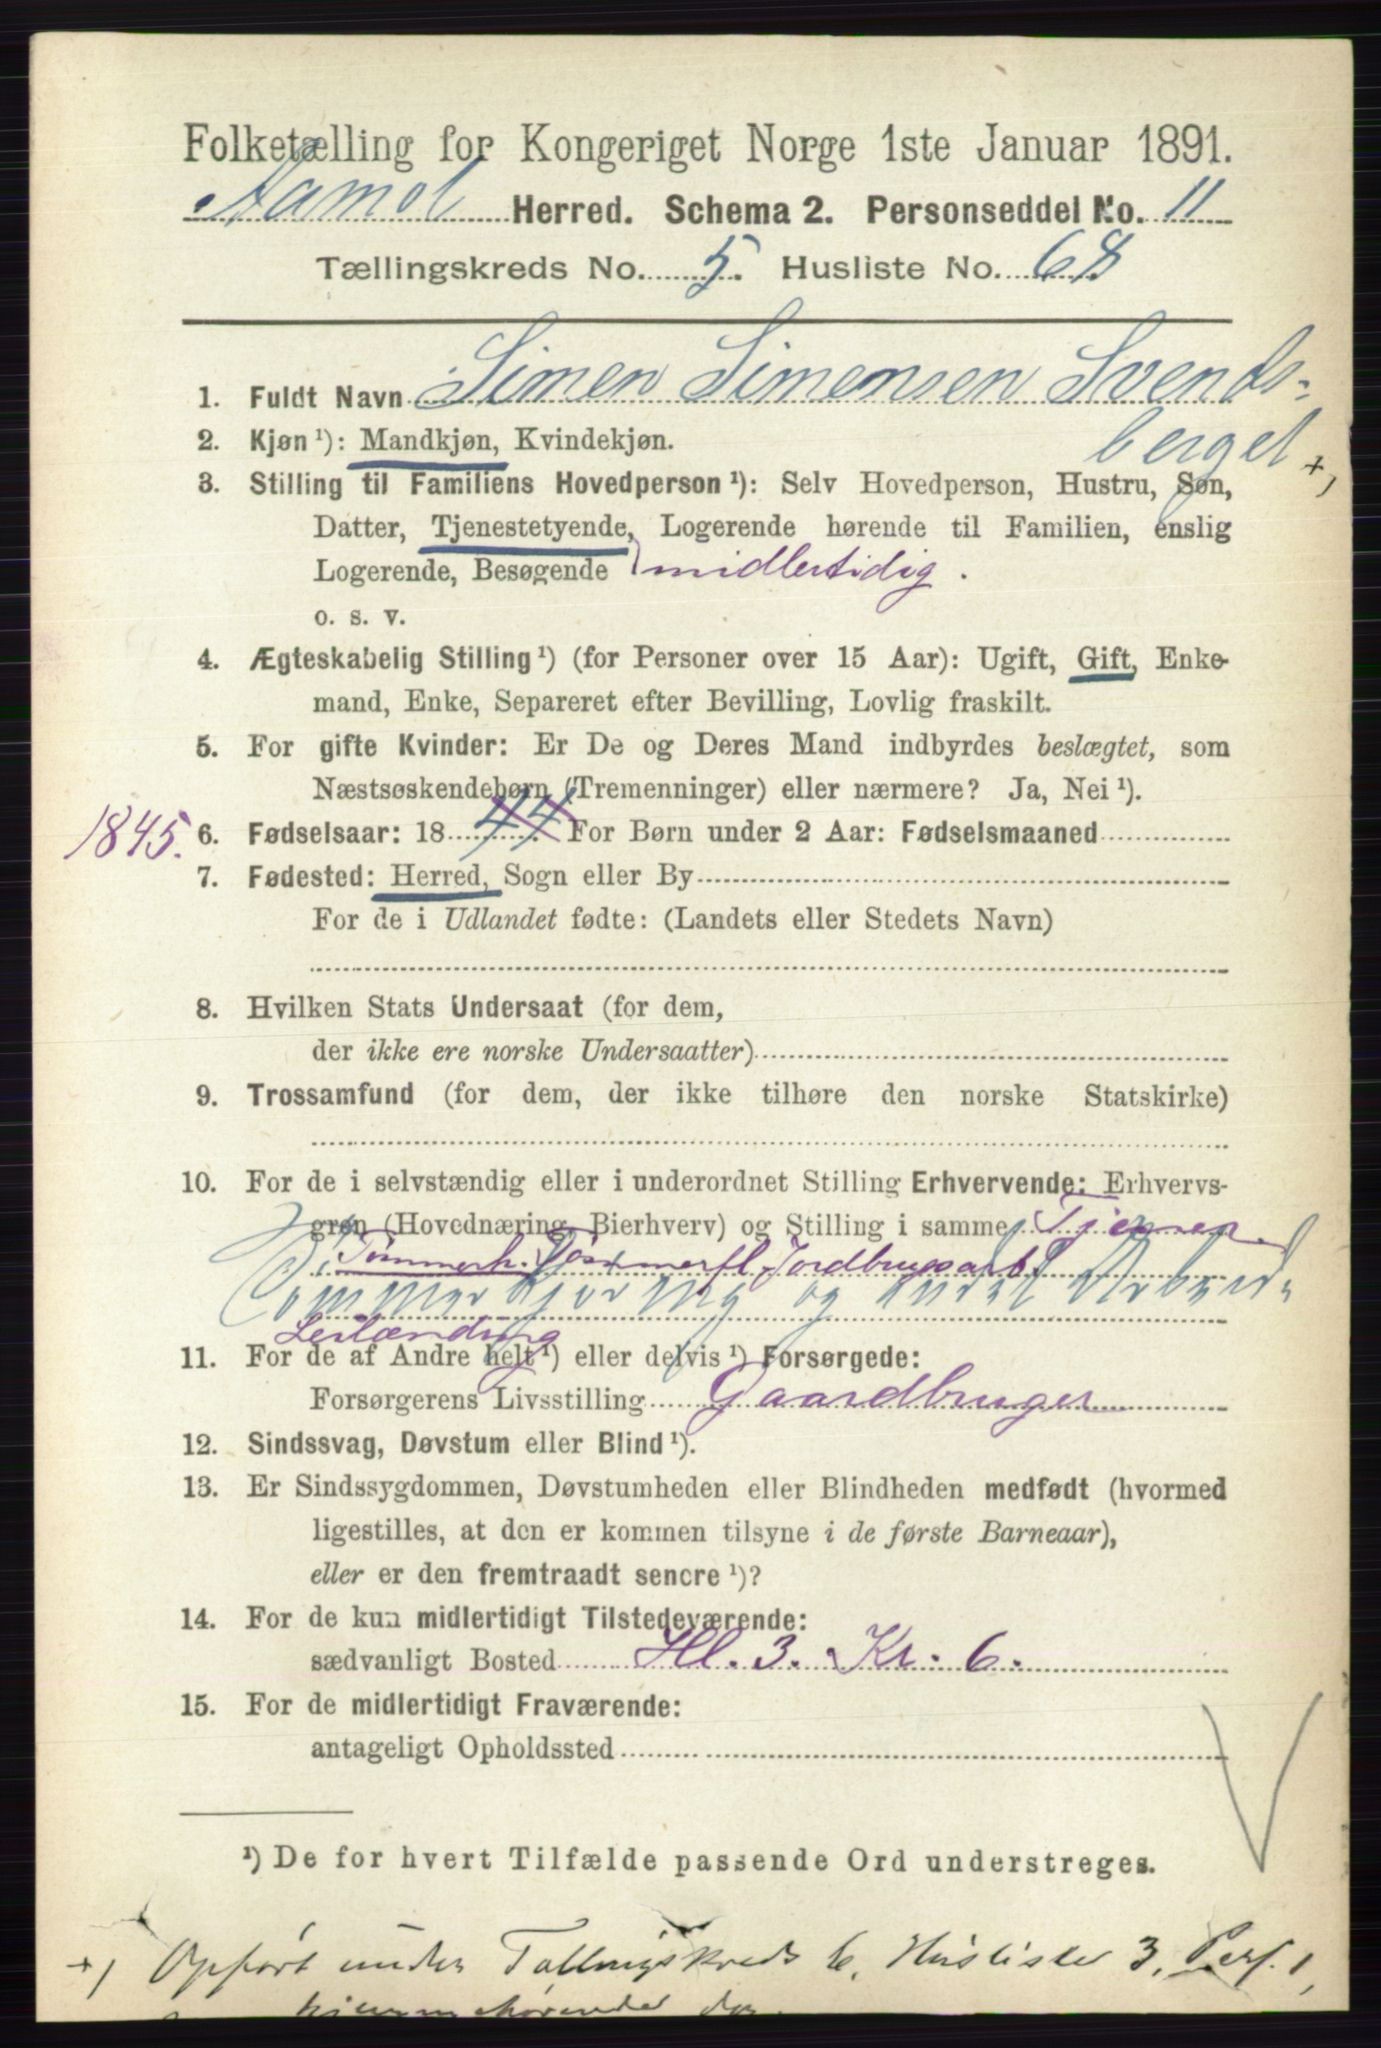 Folketælling for Kongeriget Norge 1ste Januar 1891.
Aamot Herred. Schema 2. Personseddel No. 11
Tællingskreds No. 5. Husliste No. 68
1. Fuldt Navn Simen Simensen Svends-
berget +)
2. Kjøn¹): Mandkjøn, Kvindekjøn.
3. Stilling til Familiens Hovedperson¹): Selv Hovedperson, Hustru, Søn,
Datter, Tjenestetyende, Logerende hørende til Familien, enslig
Logerende, Besøgende midlertidig.
o. s. v.
4. Ægteskabelig Stilling¹) (for Personer over 15 Aar): Ugift, Gift, Enke-
mand, Enke, Separeret efter Bevilling, Lovlig fraskilt.
5. For gifte Kvinder: Er De og Deres Mand indbyrdes beslægtet, som
Næstsøskendebørn (Tremenninger) eller nærmere? Ja, Nei¹).
1845. 6. Fødselsaar: 18 44 For Børn under 2 Aar: Fødselsmaaned
7. Fødested: Herred, Sogn eller By
For de i Udlandet fødte: (Landets eller Stedets Navn)
8. Hvilken Stats Undersaat (for dem,
der ikke ere norske Undersaatter)
9. Trossamfund (for dem, der ikke tilhøre den norske Statskirke)
10. For de i selvstændig eller i underordnet Stilling Erhvervende: Erhvervs-
gren (Hovednæring, Bierhverv) og Stilling i samme Tjener
Tømmerh. Tømmerfl. Jordbrugsarb.
Tømmerkjøring og andet Arbeid.
Leilænding
11. For de af Andre helt¹) eller delvis¹) Forsørgede:
Forsørgerens Livsstilling Gaardbruger
12. Sindssvag, Døvstum eller Blind¹).
13. Er Sindssygdommen, Døvstumheden eller Blindheden medfødt (hvormed
ligestilles, at den er kommen tilsyne i de første Barneaar),
eller er den fremtraadt senere¹)?
14. For de kun midlertidigt Tilstedeværende:
sædvanligt Bosted Hl. 3. Kr. 6.
15. For de midlertidigt Fraværende:
antageligt Opholdssted
¹) De for hvert Tilfælde passende Ord understreges.
+) Opført under Tællingskreds 6, Husliste 3, Pers. 1,
hjemmehørende der